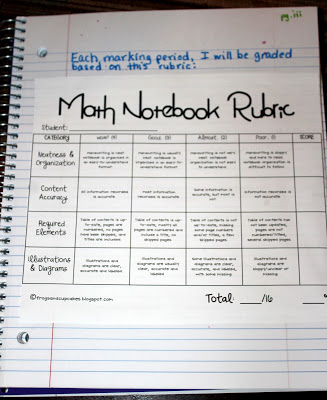 pg. iii
Each marking period, I will be graded
based on this rubric:
Math Notebook Rubric
Student:
CATEGORY Wow! (4) Good. (3) Almost. (2) Poor. (1) SCORE
Neatness &
Organization
Handwriting is neat
notebook is organized in
an easy to understand
format
Handwriting is usually
neat notebook is
organized in an easy to
understand format
Handwriting is not very
neat notebook is not very
organized
notebook is
difficult to follow
Content
Accuracy
All information recorded
is accurate
Most information
recorded is accurate
Some information is
accurate, but most is
not
Information recorded is
not accurate
Required
Elements
Table of contents is up-
to-date, pages are
numbered, no pages
have been skipped, and
titles are included
Table of contents is up-
to-date, mostly all
pages are numbered and
include a title, no
skipped pages
Table of contents is not
up to date, missing
some page numbers
and/or titles, a few
skipped pages
Table of contents has
not been updates,
pages are not
numbered/titled,
several skipped pages
Illustrations
& Diagrams
Illustrations and
diagrams are clear,
accurate and labeled
Illustrations and
diagrams are usually
clear, accurate and
labeled
Some illustrations and
diagrams are clear,
accurate, and labeled,
with some missing
Illustrations and
diagrams are
sloppy/unclear or
missing
©frogsandcupcakes.blogspot.com
Total: /16